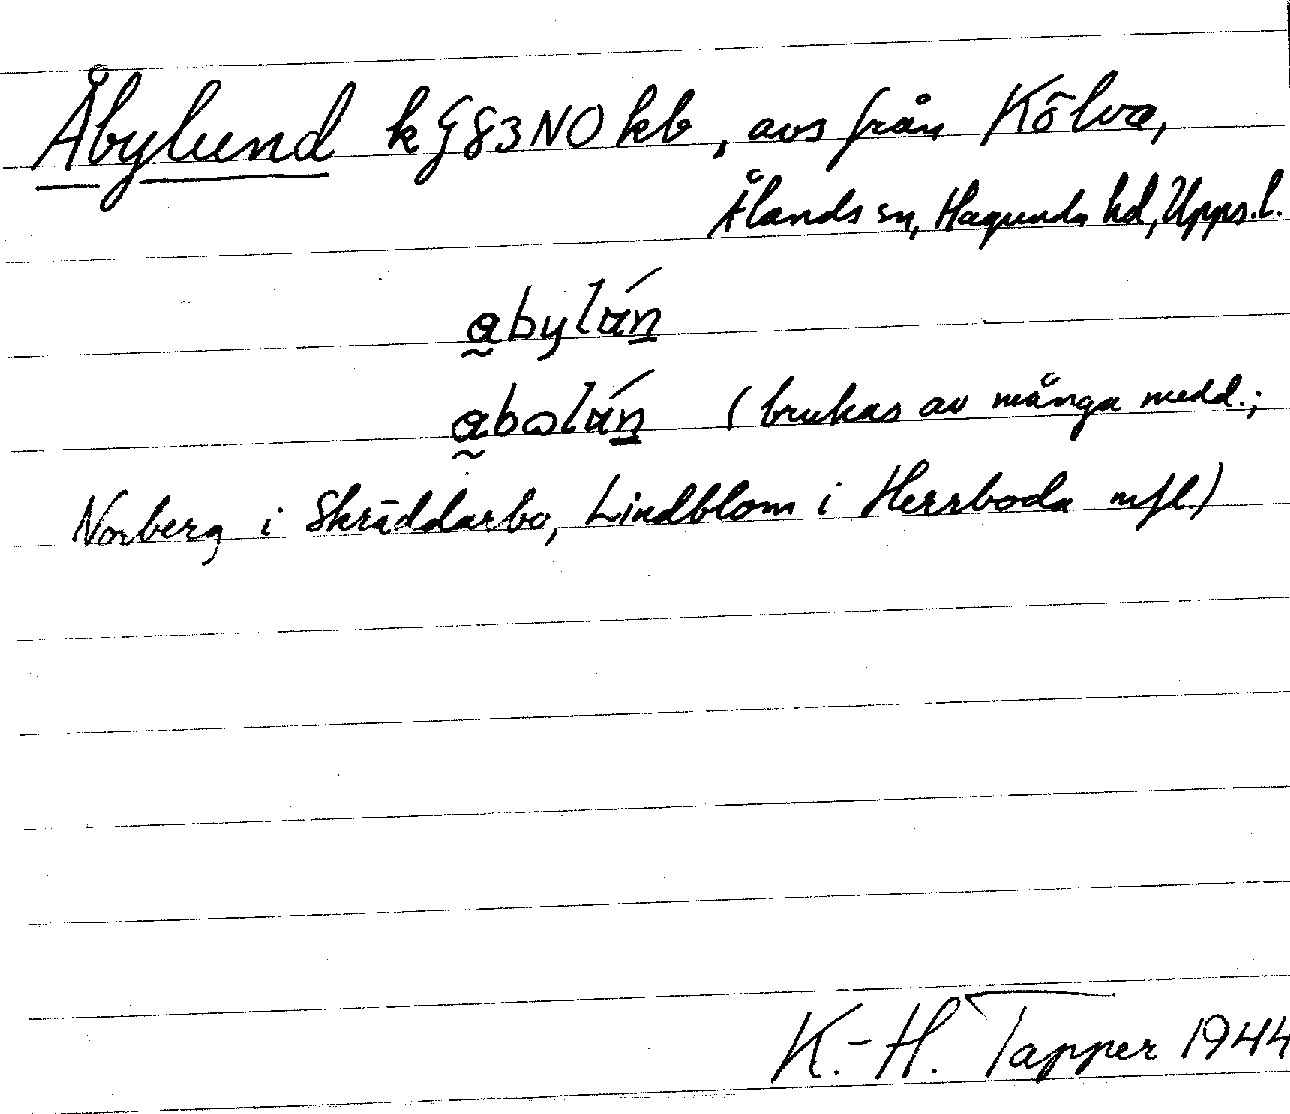 Åbylund k G83NO kb, avs från Kölva,
Ålands sn, Hagunda hd, Upps. l.
abylún
abolún (brukas av många medd.;
Norberg i Skräddarbo, Lindblom i Herrboda mfl)
K.-H. Tapper 1944